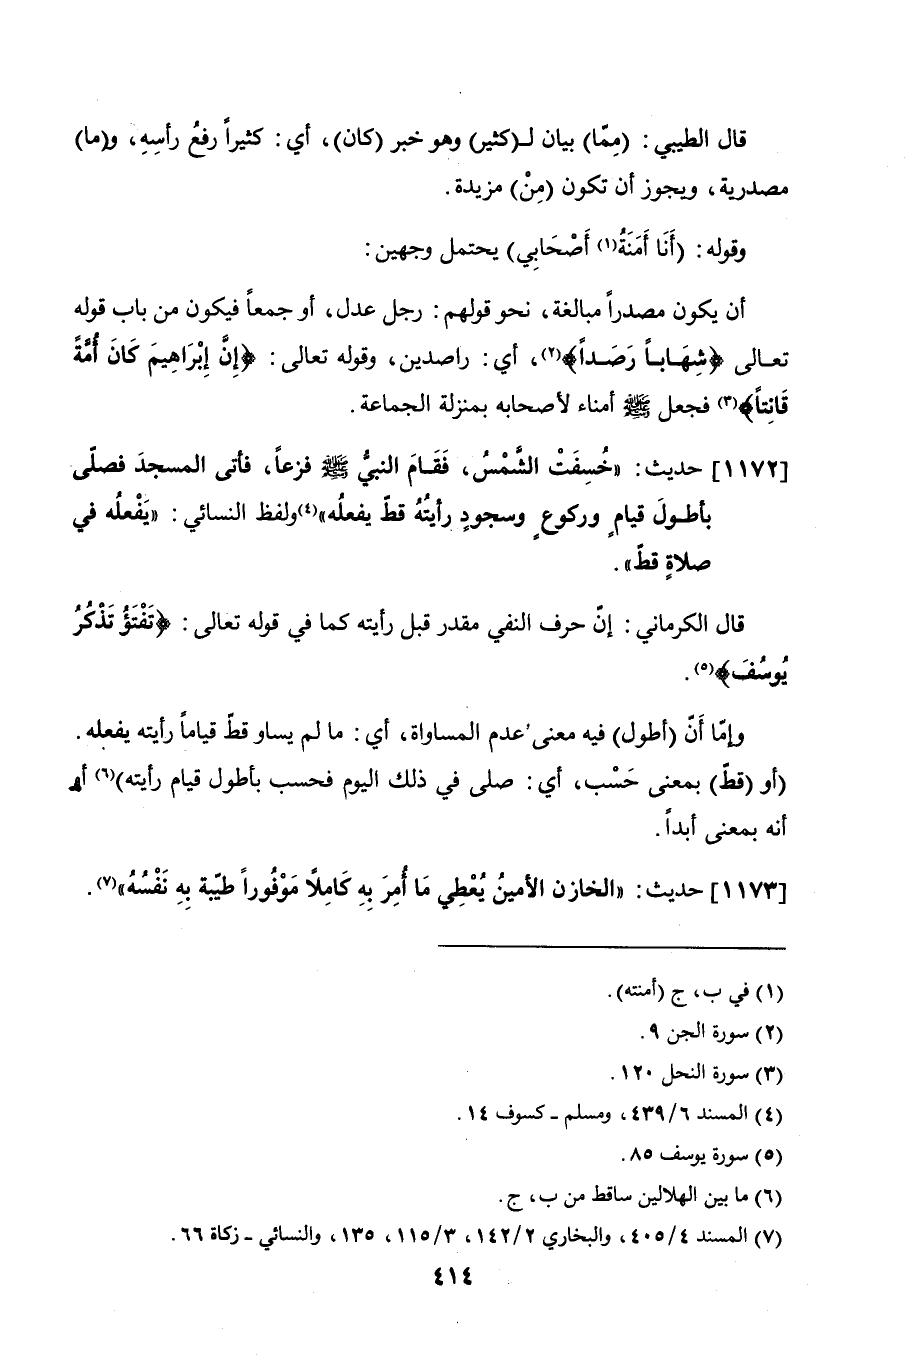 قال الطيبي : (مِمّا) بيان لـ(كثير) وهو خبر (كان)، أي : كثيراً رفعُ رأسِهِ، و(ما)
مصدرية، ويجوز أن تكون (مِنْ) مزيدة .
وقوله : (أَنَا أَمَنَةُ(١) أَصْحَابي) يحتمل وجهين :
أن يكون مصدراً مبالغة، نحو قولهم : رجل عدل، أو جمعاً فيكون من باب قوله
تعـالى ﴿شِهَـابـاً رَصَـداً﴾(٢)، أي : راصدين، وقوله تعالى : ﴿إنَّ إِبْرَاهِيمَ كَانَ أُمَّةً
قَانِتاً﴾(٣) فجعل ﷺ أمناء لأصحابه بمنزلة الجماعة .
[١١٧٢] حديث : «خُسِفَتْ الشَّمْسُ، فَقَـامَ النبيُّ ﷺ فزعاً، فأتى المسجدَ فصلّى
بأطـولَ قيامٍ وركوعٍ وسجودٍ رأيتُهُ قطّ يفعلُه»(٤)ولفظ النسائي : «يَفْعلُه في
صلاةٍ قطّ» .
قال الكرماني : إنّ حرف النفي مقدر قبل رأيته كما في قوله تعالى : ﴿تَفْتَؤُ تَذْكُرُ
يُوسُفَ﴾(٥) .
وإمّا أَنّ (أطول) فيه معنى عدم المساواة، أي : ما لم يساو قطّ قياماً رأيته يفعله .
(أو (قطّ) بمعنى حَسْب، أي : صلى في ذلك اليوم فحسب بأطول قيام رأيته)(٦) أو
أنه بمعنى أبداً .
[١١٧٣] حديث : «الخازن الأمينُ يُعْطِي مَا أُمِرَ بِهِ كَامِلاً مَوْفُوراً طيّبة بِهِ نَفْسُهُ»(٧) .
(١) في ب، ج (أمنته) .
(٢) سورة الجن ٩ .
(٣) سورة النحل ١٢٠ .
(٤) المسند ٤٣٩/٦، ومسلم ـ كسوف ١٤ .
(٥) سورة يوسف ٨٥ .
(٦) ما بين الهلالين ساقط من ب، ج .
(٧) المسند ٤٠٥/٤، والبخاري ١٤٢/٢، ١١٥/٣، ١٣٥، والنسائي ـ زكاة ٦٦ .
٤١٤